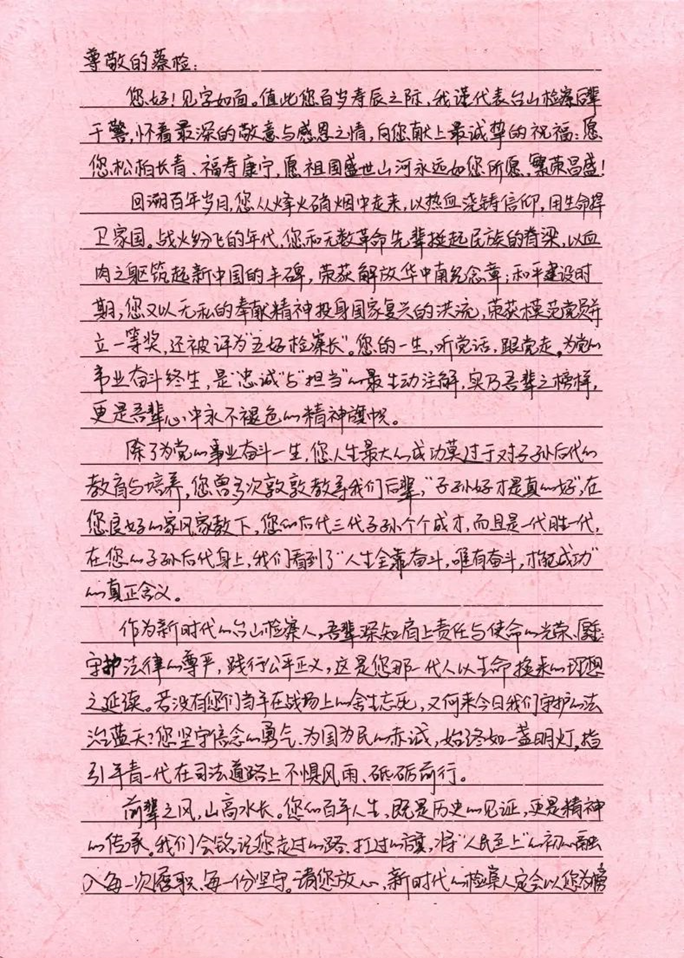 尊敬的蔡检：
您好！见字如面。值此您百岁寿辰之际，我谨代表台山检察后辈
干警，怀着最深的敬意与感恩之情，向您献上最诚挚的祝福：愿
您松柏长青、福寿康宁，愿祖国盛世山河永远如您所愿，繁荣昌盛！
回溯百年岁月，您从烽火硝烟中走来，以热血浇铸信仰，用生命捍
卫家国。战火纷飞的年代，您和无数革命先辈挺起民族的脊梁，以血
肉之躯筑起新中国的丰碑，荣获解放华中南纪念章；和平建设时
期，您又以无私的奉献精神投身国家复兴的洪流，荣获模范党员并
立一等奖，还被评为“五好检察长”。您的一生，听党话，跟党走，为党的
事业奋斗终生，是“忠诚”与“担当”的最生动注解，实乃吾辈之榜样，
更是吾辈心中永不褪色的精神旗帜。
除了为党的事业奋斗一生，您人生最大的成功莫过于对子孙后代的
教育与培养，您曾多次敦敦教导我们后辈，“子孙好才是真的好”，在
您良好的家风家教下，您的后代三代子孙个个成才，而且是一代胜一代，
在您的子孙后代身上，我们看到了“人生全靠奋斗，唯有奋斗，才能成功”
的真正含义。
作为新时代的台山检察人，吾辈深知肩上责任与使命的光荣、厚重：
守护法律的尊严，践行公平正义，这是您那一代人以生命换来的理想
之延续。若没有您们当年在战场上的舍生忘死，又何来今日我们守护的法
治蓝天？您坚守信念的勇气、为国为民的赤诚，始终如一盏明灯，指
引年青一代在司法道路上不惧风雨、砥砺前行。
前辈之风，山高水长。您的百年人生，既是历史的见证，更是精神
的传承。我们会铭记您走过的路、扛过的旗，将“人民至上”的初心融
入每一次履职、每一份坚守。请您放心，新时代的检察人定会以您为榜